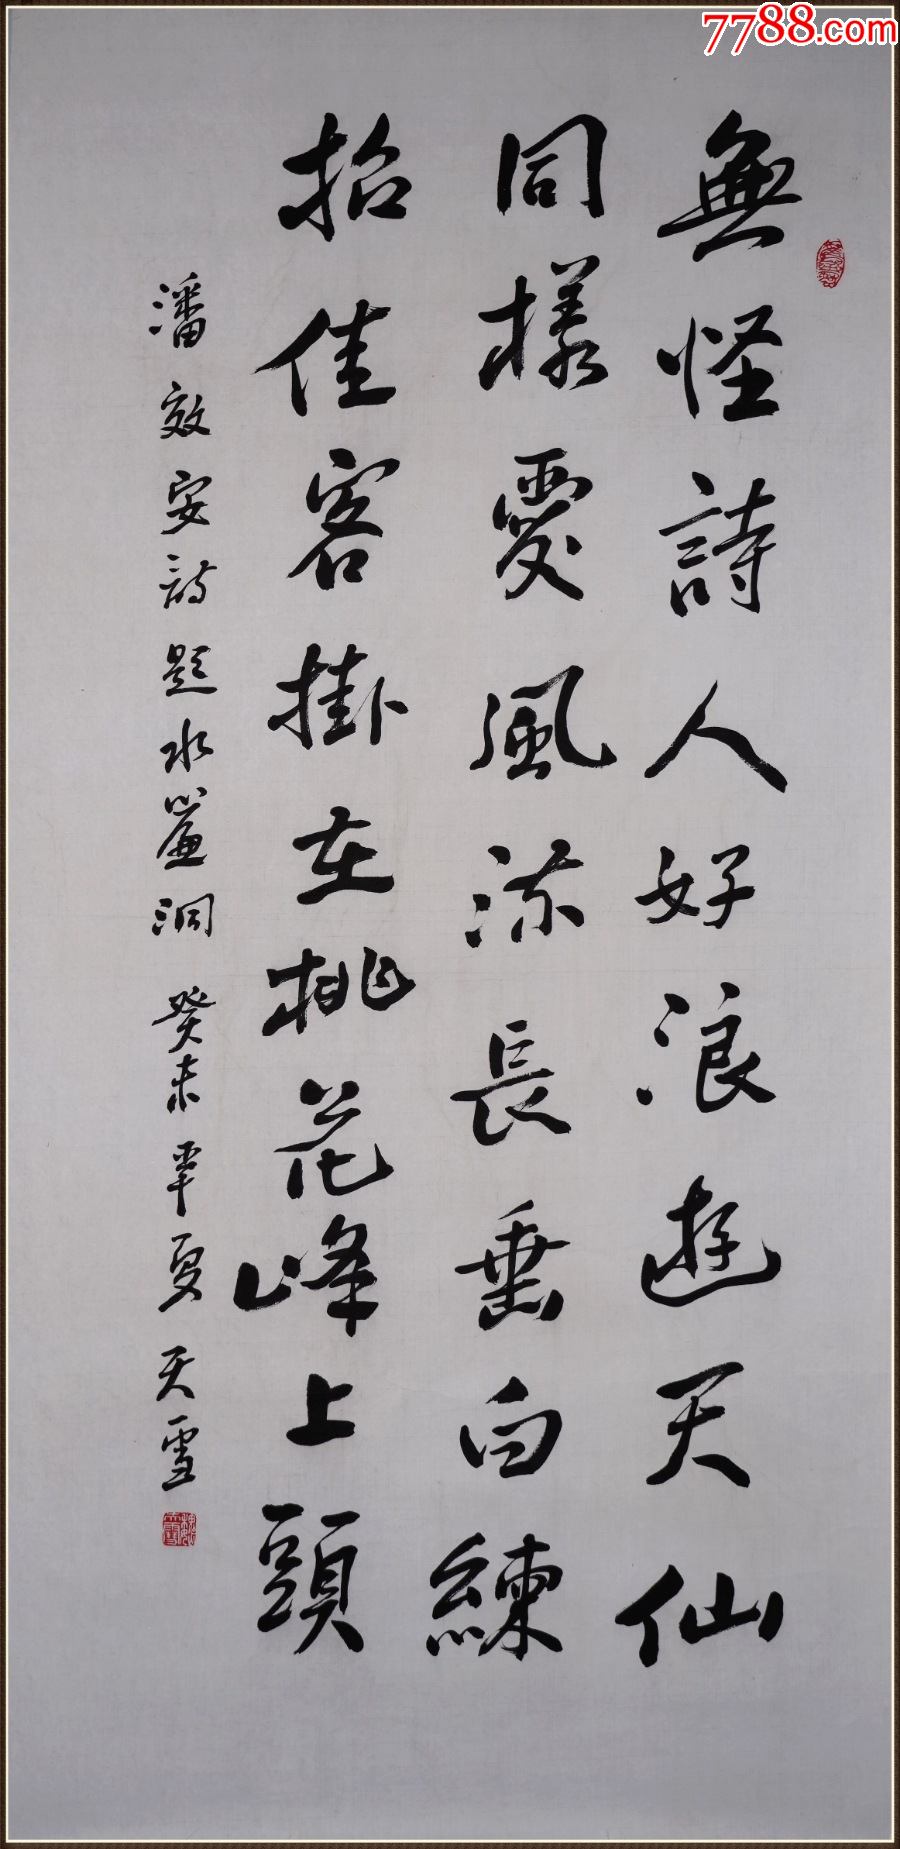 7788.com
無怪詩人好浪遊天仙
同樣愛風流長垂白練
招佳客掛在桃花峰上頭
潘效安詩題水簾洞 癸未年夏天雪